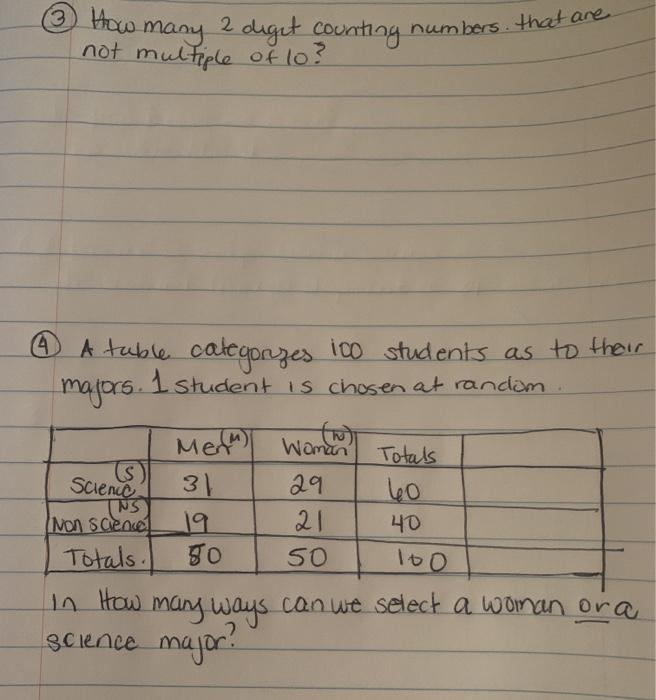 ③ How many 2 digit counting numbers. that are
not multiple of 10?
④ A table categorizes 100 students as to their
majors. 1 student is chosen at random.
Men (M) Woman (W) Totals
Science (S) 31 29 60
Non science (NS) 19 21 40
Totals. 50 50 100
In How many ways can we select a woman or a
science major?